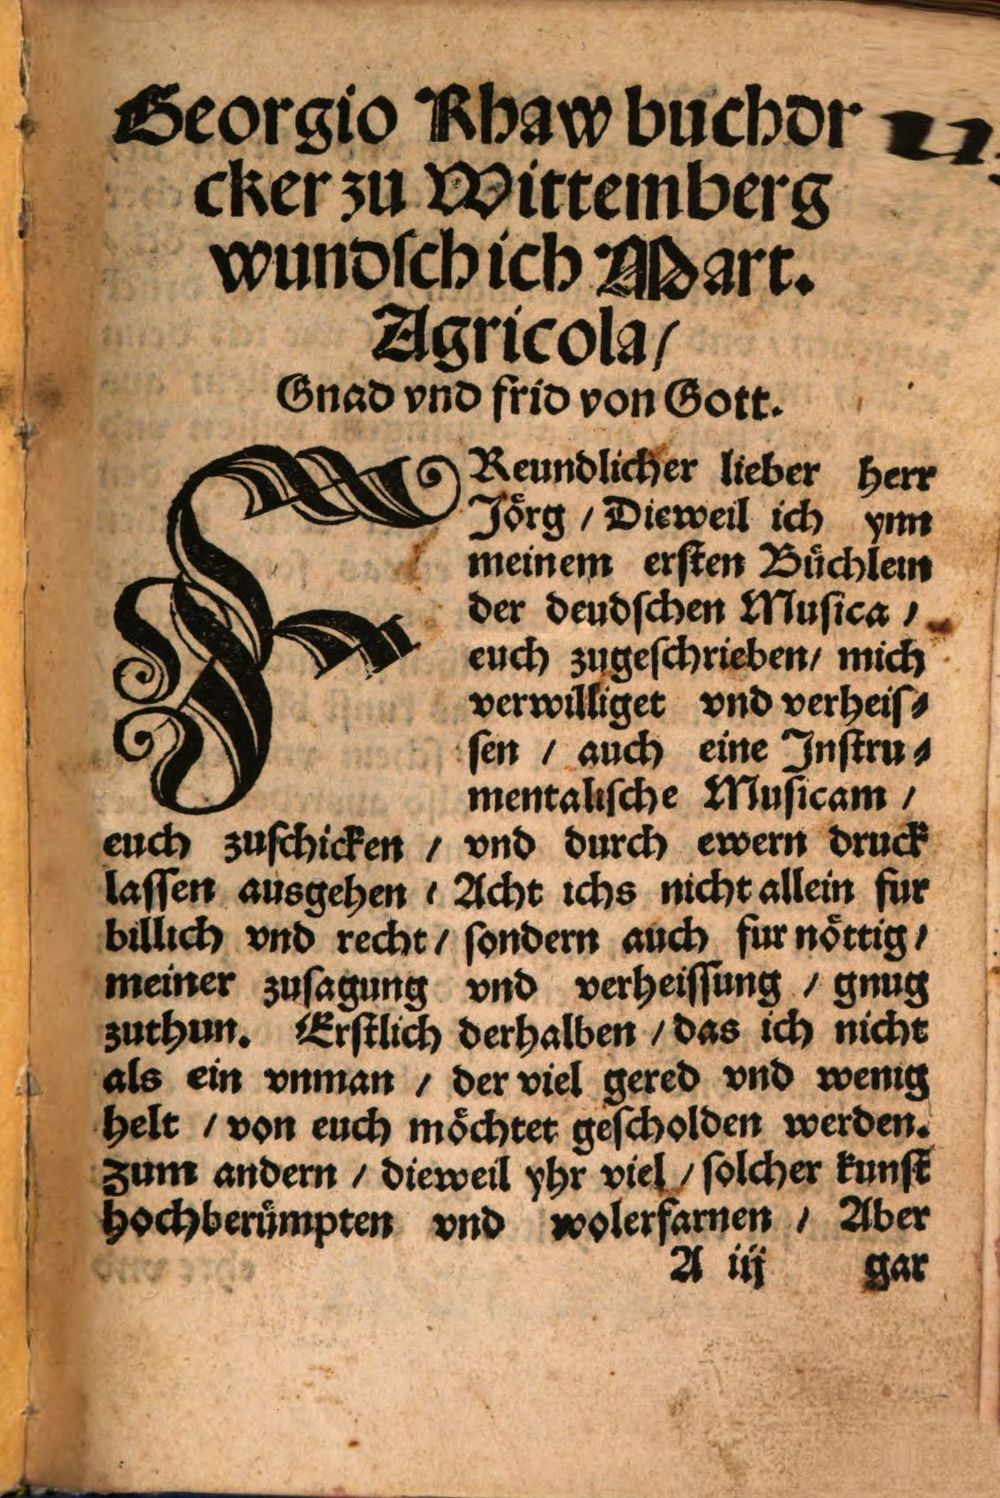 Georgio Rhaw buchdr
cker zu Wittemberg
wundsch ich Mart.
Agricola/
Gnad vnd frid von Gott.
FReundlicher lieber herr
Jörg / Dieweil ich ynn
meinem ersten Büchlein
der deudschen Musica /
euch zugeschrieben/ mich
verwilliget vnd verheis⸗
sen / auch eine Instru⸗
mentalische Musicam /
euch zuschicken / vnd durch ewern druck
lassen ausgehen / Acht ichs nicht allein fur
billich vnd recht/ sondern auch fur nöttig/
meiner zusagung vnd verheissung / gnug
zuthun. Erstlich derhalben / das ich nicht
als ein vnman / der viel gered vnd wenig
helt / von euch möchtet gescholden werden.
Zum andern / dieweil yhr viel / solcher kunst
hochberümpten vnd wolerfarnen / Aber
A iij gar